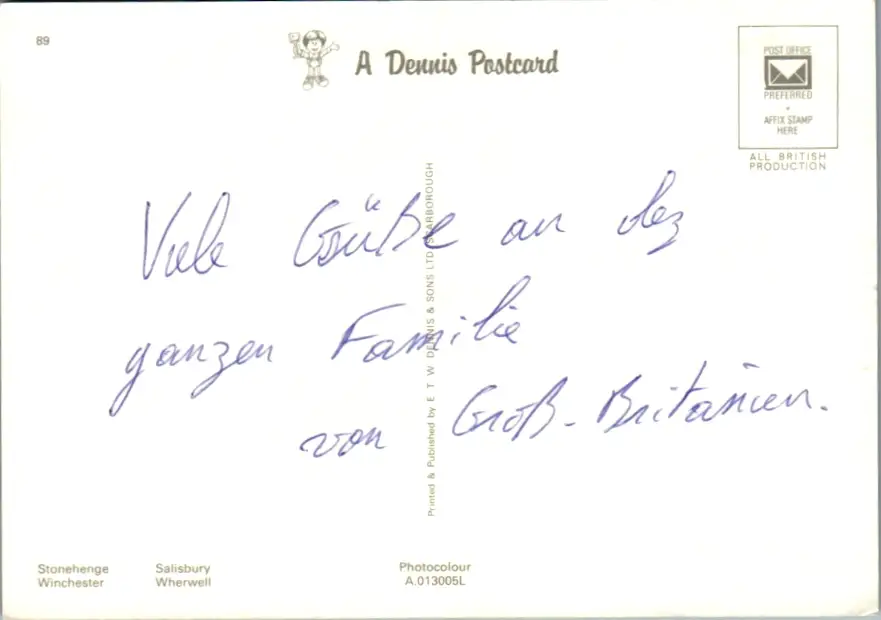 89
A Dennis Postcard
POST OFFICE
PREFERRED
AFFIX STAMP
HERE
ALL BRITISH
PRODUCTION
Viele Grüße an der
ganzen Familie
von Groß-Britanien.
Printed & Published by E T W DENNIS & SONS LTD SCARBOROUGH
Stonehenge Salisbury
Winchester Wherwell
Photocolour
A.013005L